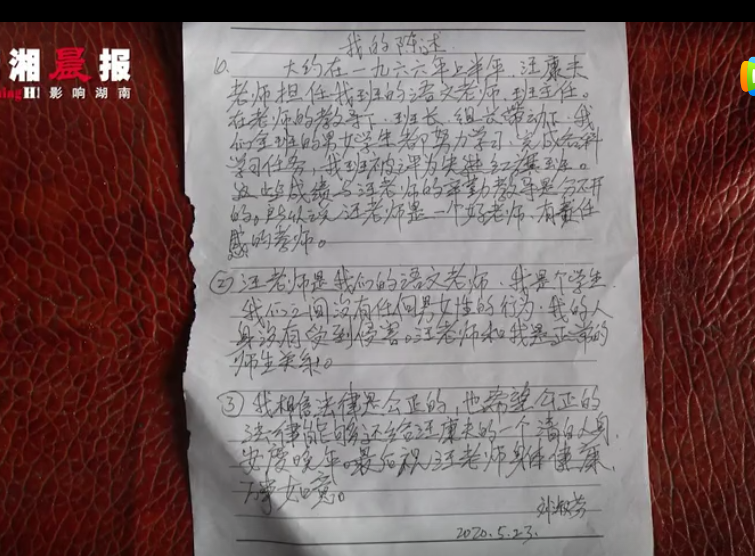 湘晨报
ingH 影响湖南
我的陈述
⑥. 大约在一九六六年上半年,汪康夫
老师担任我班的语文老师,班主任。
在老师的教导下,班长、组长带动下,我
们全班的男女学生都努力学习,完成各科
学习任务,我班被评为先进红旗班。
这些成绩与汪老师的辛勤教导是分不开
的。所以说汪老师是一个好老师、有责任
感的老师。
②汪老师是我们的语文老师,我是个学生,
我们之间没有任何男女性的行为,我的人
身没有受到侵害。汪老师和我是正常的
师生关系。
③我相信法律是公正的,也希望公正的
法律能够还给汪康夫的一个清白人身,
安度晚年。最后祝汪老师身体健康,
万事如意。
2020.5.23.